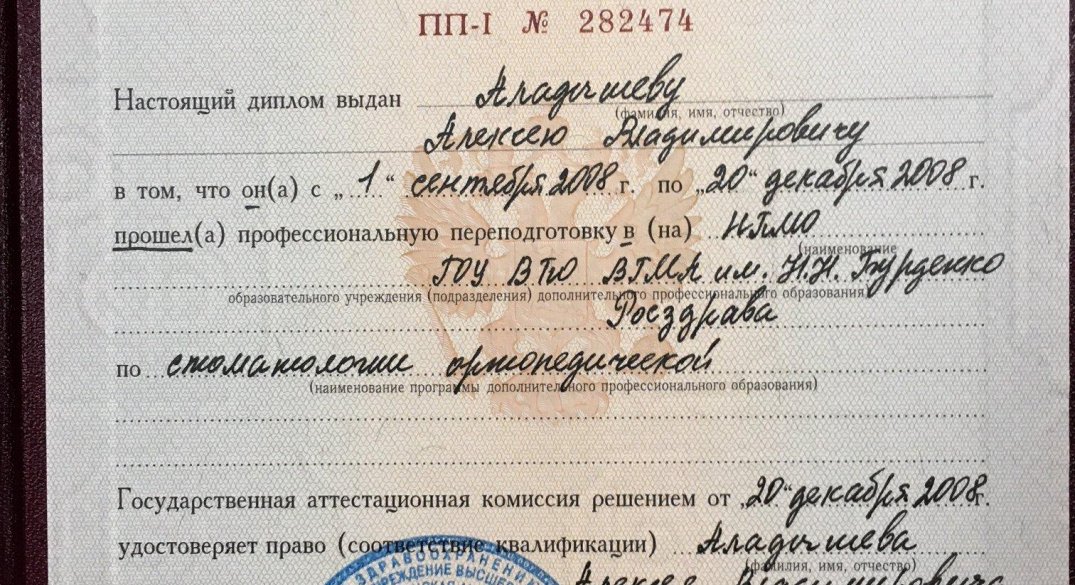 ПП-I № 282474
Настоящий диплом выдан Аладышеву
(фамилия, имя, отчество)
Алексею Владимировичу
в том, что он(а) с „1“ сентября 2008 г. по „20“ декабря 2008 г.
прошел(а) профессиональную переподготовку в (на)
(наименование
ГОУ ВПО ВГМА им. Н.Н. Бурденко
образовательного учреждения (подразделения) дополнительного профессионального образования)
Росздрава
по стоматологии ортопедической
(наименование программы дополнительного профессионального образования)
Государственная аттестационная комиссия решением от „20“ декабря 2008г.
удостоверяет право (соответствие квалификации) Аладышева
(фамилия, имя, отчество)
ЗДРАВООХРАНЕНИЮ
Алексея Владимировича